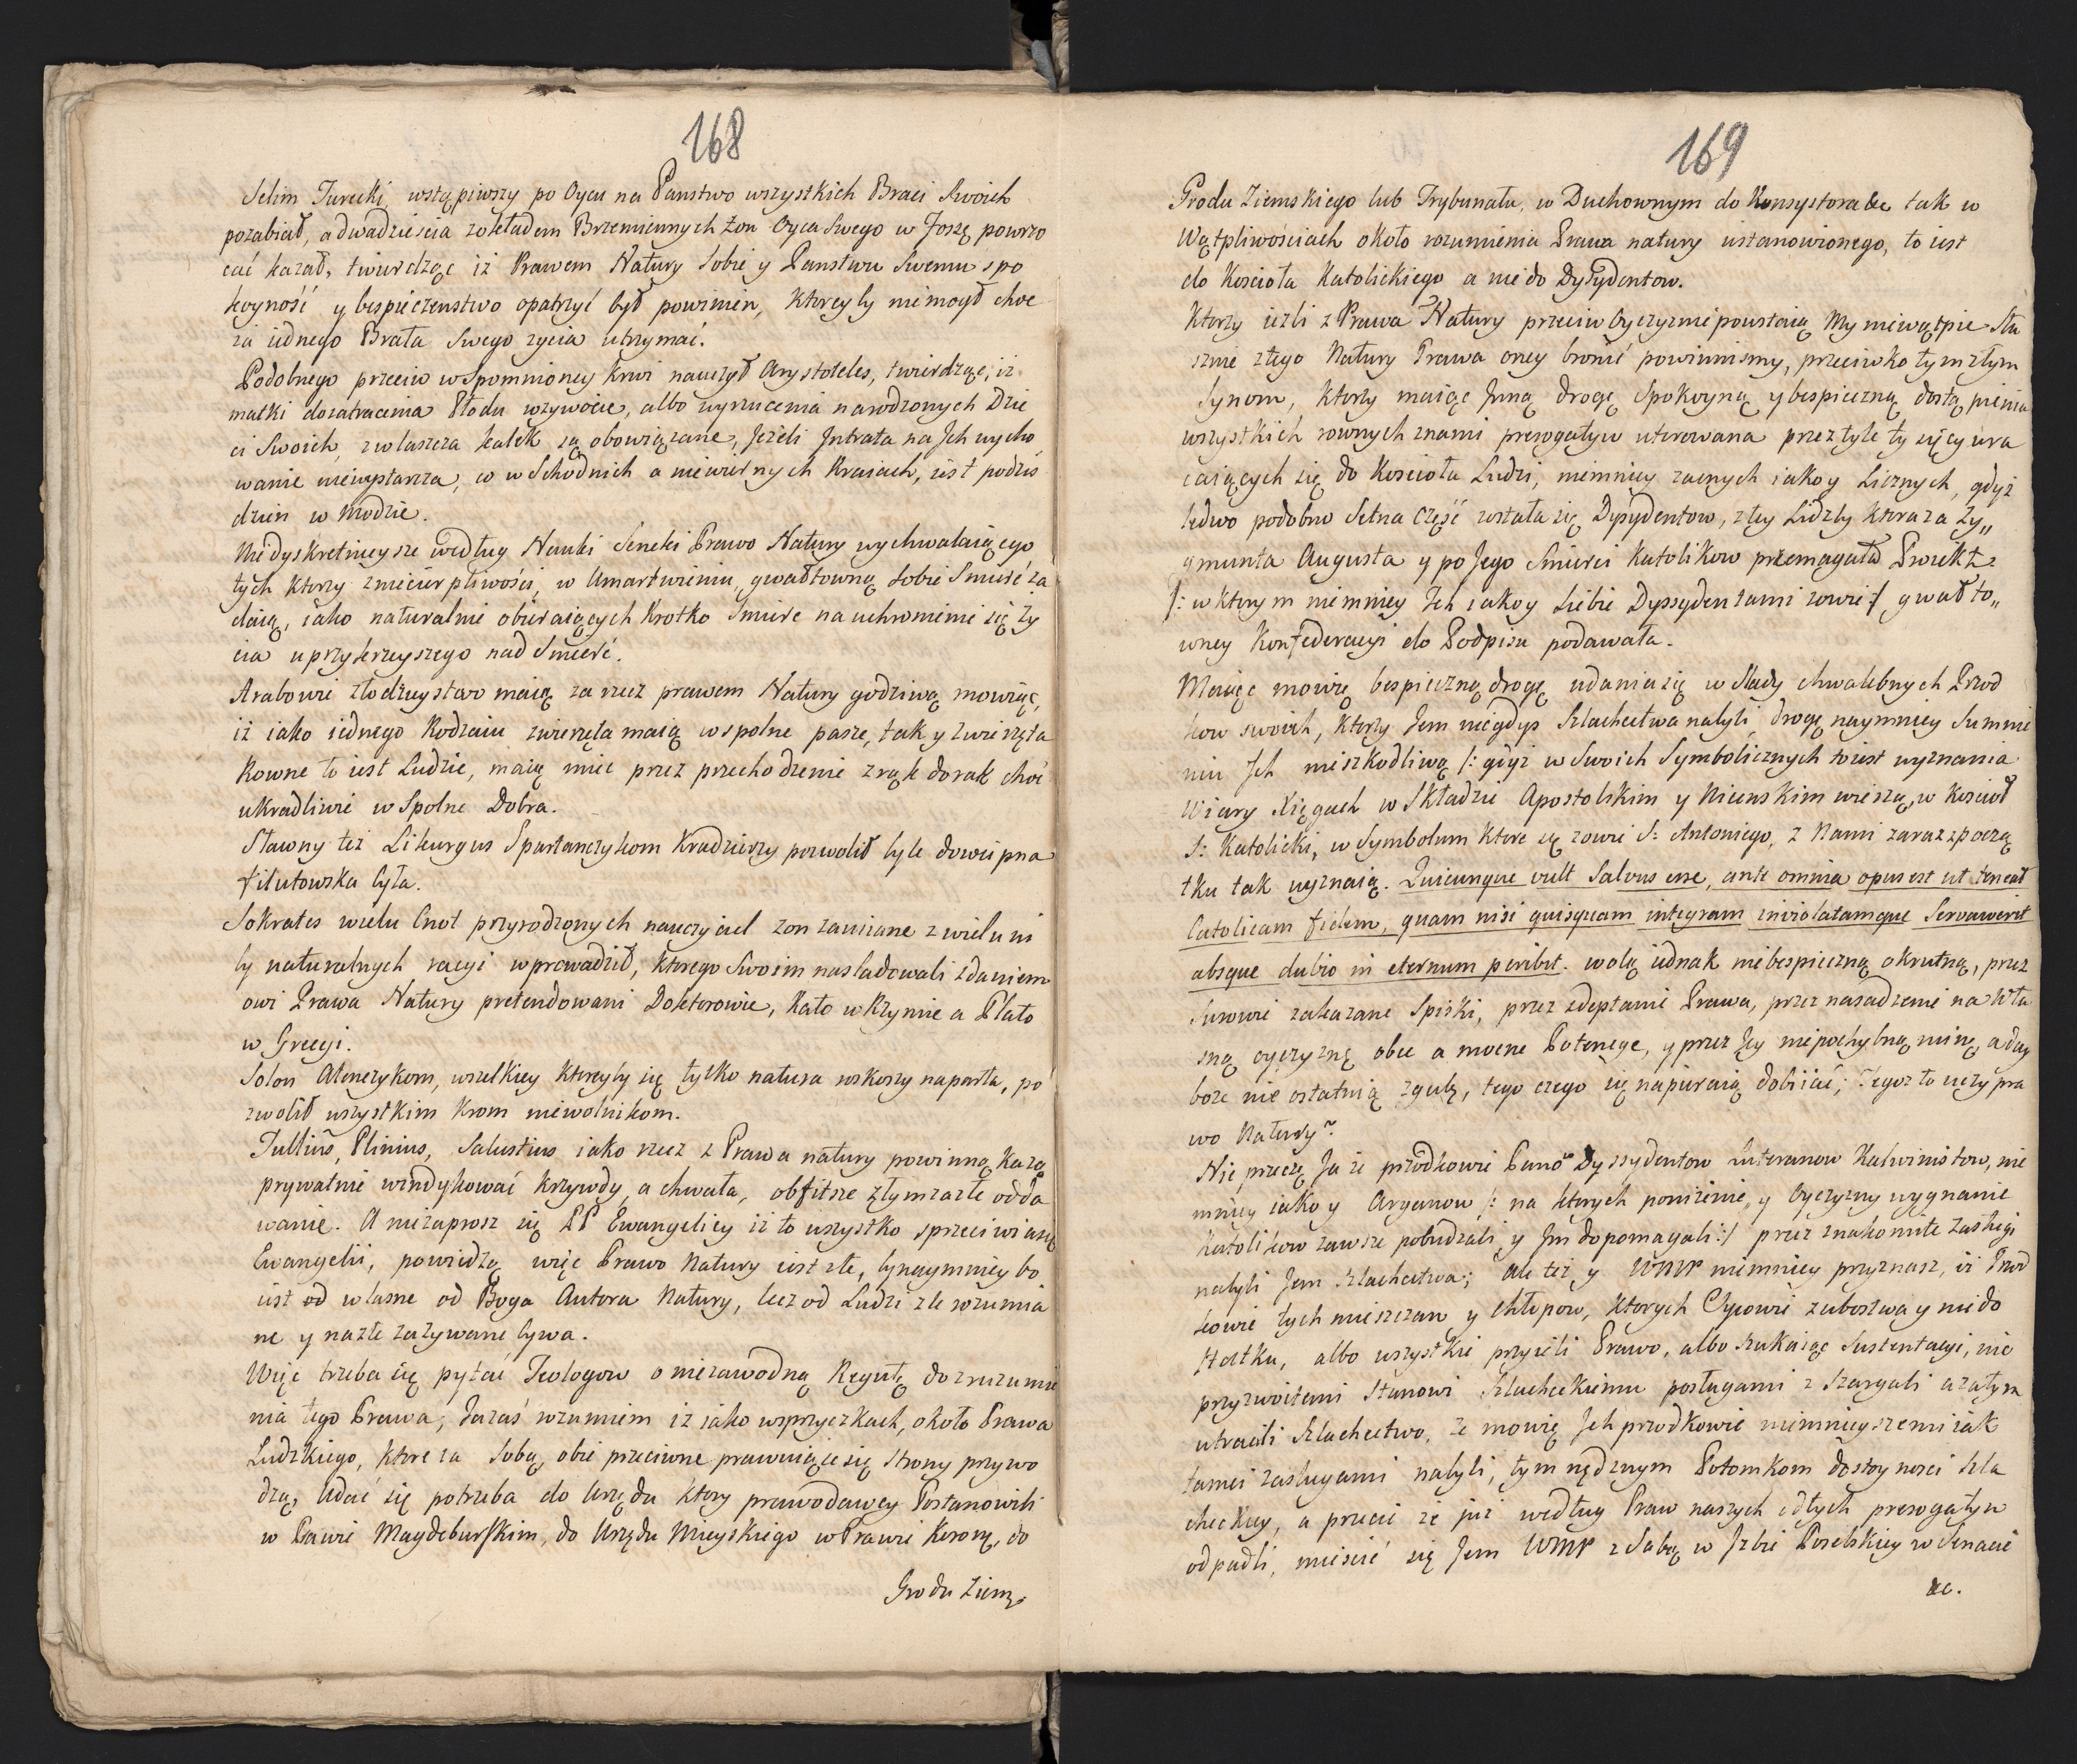 168
Selim Turecki, wstąpiwszy po Oycu na Panstwo wszystkich Braci Swoich
pozabiał, a dwadziescia zokładem Brzemiennych żon Oyca Swego w Foszę powrzo
cać kazał, twierdząc iż Prawem Natury Sobie y Panstwu Swemu spo
koyność y bespieczenstwo opatrzyć był powinien, ktoreyby niemogł choc
za iednego Brata Swego zycia utrzymać.
Podobnego przeciw wspomnioney krwi nauczył Arystoteles, twierdząc, iż
matki dozatracenia Płodu wzywocie, albo wyrzucenia narodzonych Dzie
ci Swoich, zwlaszcza kalek są obowiązane, Jezeli Intrata na Ich wycho
wanie niewystarcza, co w Schodnich a niewiernych Kraiach, iest podzis
dzien w Modzie.
Niedyskretnieysze według Nauki Seneki Prawo Natury wychwalaiącego
tych ktorzy zniecierpliwości, w Umartwieniu, gwałtowną sobie Smierć za
daią, iako naturalnie obieraiących krotko Smierc na uchronienie się Zy
cia uprzykrzeyszego nad Smierć.
Arabowie złodzieystwo maią za rzecz prawem Natury godziwą mowiąc,
iż iako iednego Rodzaiu zwierzęta maią wspolne pasze, tak y Zwierzęta
Rowne to iest Ludzie, maią miec przez przechodzenie z rąk do rąk choć
ukradliwie w Spolne Dobra.
Sławny też Likurgus Spartanczykom Kradzierzy pozwolił byle dowcipna
filutowska była.
Sokrates wielu Cnot przyrodzonych nauczyciel zon zamiane z wielu ni
by naturalnych racyi wprowadził, ktorego Swoim nasladowali zdaniem
owi Prawa Natury pretendowani Doktorowie, Kato w Rzymie a Plato
w Grecyi.
Solon Atenczykom, wszelkiey ktoreyby się tylko natura roskoszy naparła, po
zwolił wszystkim krom niewolnikom.
Tullius, Plinius, Salustius iako rzecz z Prawa natury powinną każą
prywatnie windykować krzywdy, a chwala, obfitsze złym zazłe odda
wanie. A niezaprosz się PP Ewangelicy iż to wszystko sprzeciwiasię
Ewangelii, powiedzą więc Prawo Natury iest złe, bynaymniey bo
iest od wlasne od Boga Autora Natury, lecz od Ludzi zle rozumia
ne y nazłe zazywane bywa.
Więc trzeba się pytać Teologow o niezawodną Regułę do zrozumie
nia tego Prawa; Jazaś rozumiem iż iako wsprzyczkach, około Prawa
Ludzkiego, ktore za Sobą, obie przeciwne prawuiące się Strony przywo
dzą, Udać się potrzeba do Urzędu ktory prawodawcy Postanowili
w Pawie Magdeburskim, do Urzędu Mieyskiego w Prawie Koronn, do
Grodu Ziems
169
Grodu Ziemskiego lub Trybunału, w Duchownym do Konsystora &c tak w
Wątpliwościach około rozumienia Prawa natury ustanowionego, to iest
do Kosciola Katolickiego a nie do Dysydentow.
Ktorzy iezli z Prawa Natury przeciw Oyczyznie powstaią My niewątpie Słu
sznie z tego Natury Prawa oney bronić powinnismy, przeciwko tym złym
Synom, ktorzy maiąc Inną drogę Spokoyną y bespieczną dostąpienia
wszystkich rownych znami prerogatyw uterowana przez tyle tysięcy wra
caiących się do Kosciola Ludzi, niemniey zacnych iako y Licznych, gdyż
ledwo podobno Setna Część zostala się Dysydentow, z tey Lidzby ktora za Zy„
gmunta Augusta y po Jego Smierci Katolikow przemagała Zwiekts
/: w ktorym niemniey Ich iako y Siebie Dyssydentami zowie :/ gwałto„
wney Konfederacyi do Podpisu podawała.
Maiąc mowię bespieczną drogę udania się w Slady chwalebnych Przod
kow swoich, ktorzy Jem niegdys Szlachectwa nabyli, drogę naymniey Summie
niu Ich nieszkodliwą /: gdyż w Swoich Symbolicznych toiest wyznania
Wiary Xięgach w Składzie Apostolskim y Niceńskim wierzą, w Kosciół
S: Katolicki, w Symbolum ktore się zowie S: Antoniego, z Nami zaraz zpoczą
tku tak wyznaią. Quicunque vult Salvus esse, ante omnia opus est ut teneat
Catolicam fidem, quam nisi quisquam integram inviolatamque Servaverit
absque dubio in eternum peribit. wolą iednak niebespieczną okrutną, przez
Surowie zakazane Spiski, przez zdeptanie Prawa, przez nasadzenie na Wła
sną oyczyznę obce a mocne Potencye, y przez Jey niepochybną ruinę, a day
boże nie ostatnią zgubę, tego czego się napieraią dobiiać; Tegoz to uczy pra
wo Natury?
Nie przeczę Ja że przodkowie Panow Dyssydentow Luteranow Kalwinistow, nie
mniey iako y Aryanow /: na ktorych poniżenie, y Oyczyzny wygnanie
Katolikow zawsze pobudzali y Im dopomagali :/ przez znakomite Zasługi
nabyli Jem Szlachectwa; Ale też y WMP niemniey przyznasz, iż Przod
kowie tych mieszczan y chłopow, ktorych Oycowie z ubostwa y niedo
statku, albo wszystkie przyieli Prawo, albo szukaiąc Sustentacyi, nie
przyzwoitemi Stanowi Szlacheckiemu posługami z Szargali a zatym
utracili Szlachectwo, że mowię Ich przodkowie niemnieyszemi iak
tamci zasługami nabyli, tym nędznym Potomkom dostoynosci szla
checkiey, a przecie że już według Praw naszych odtych prerogatyw
odpadli, miescić się Jem WMP z Sobą w Izbie Poselskiey w Senacie
&c.